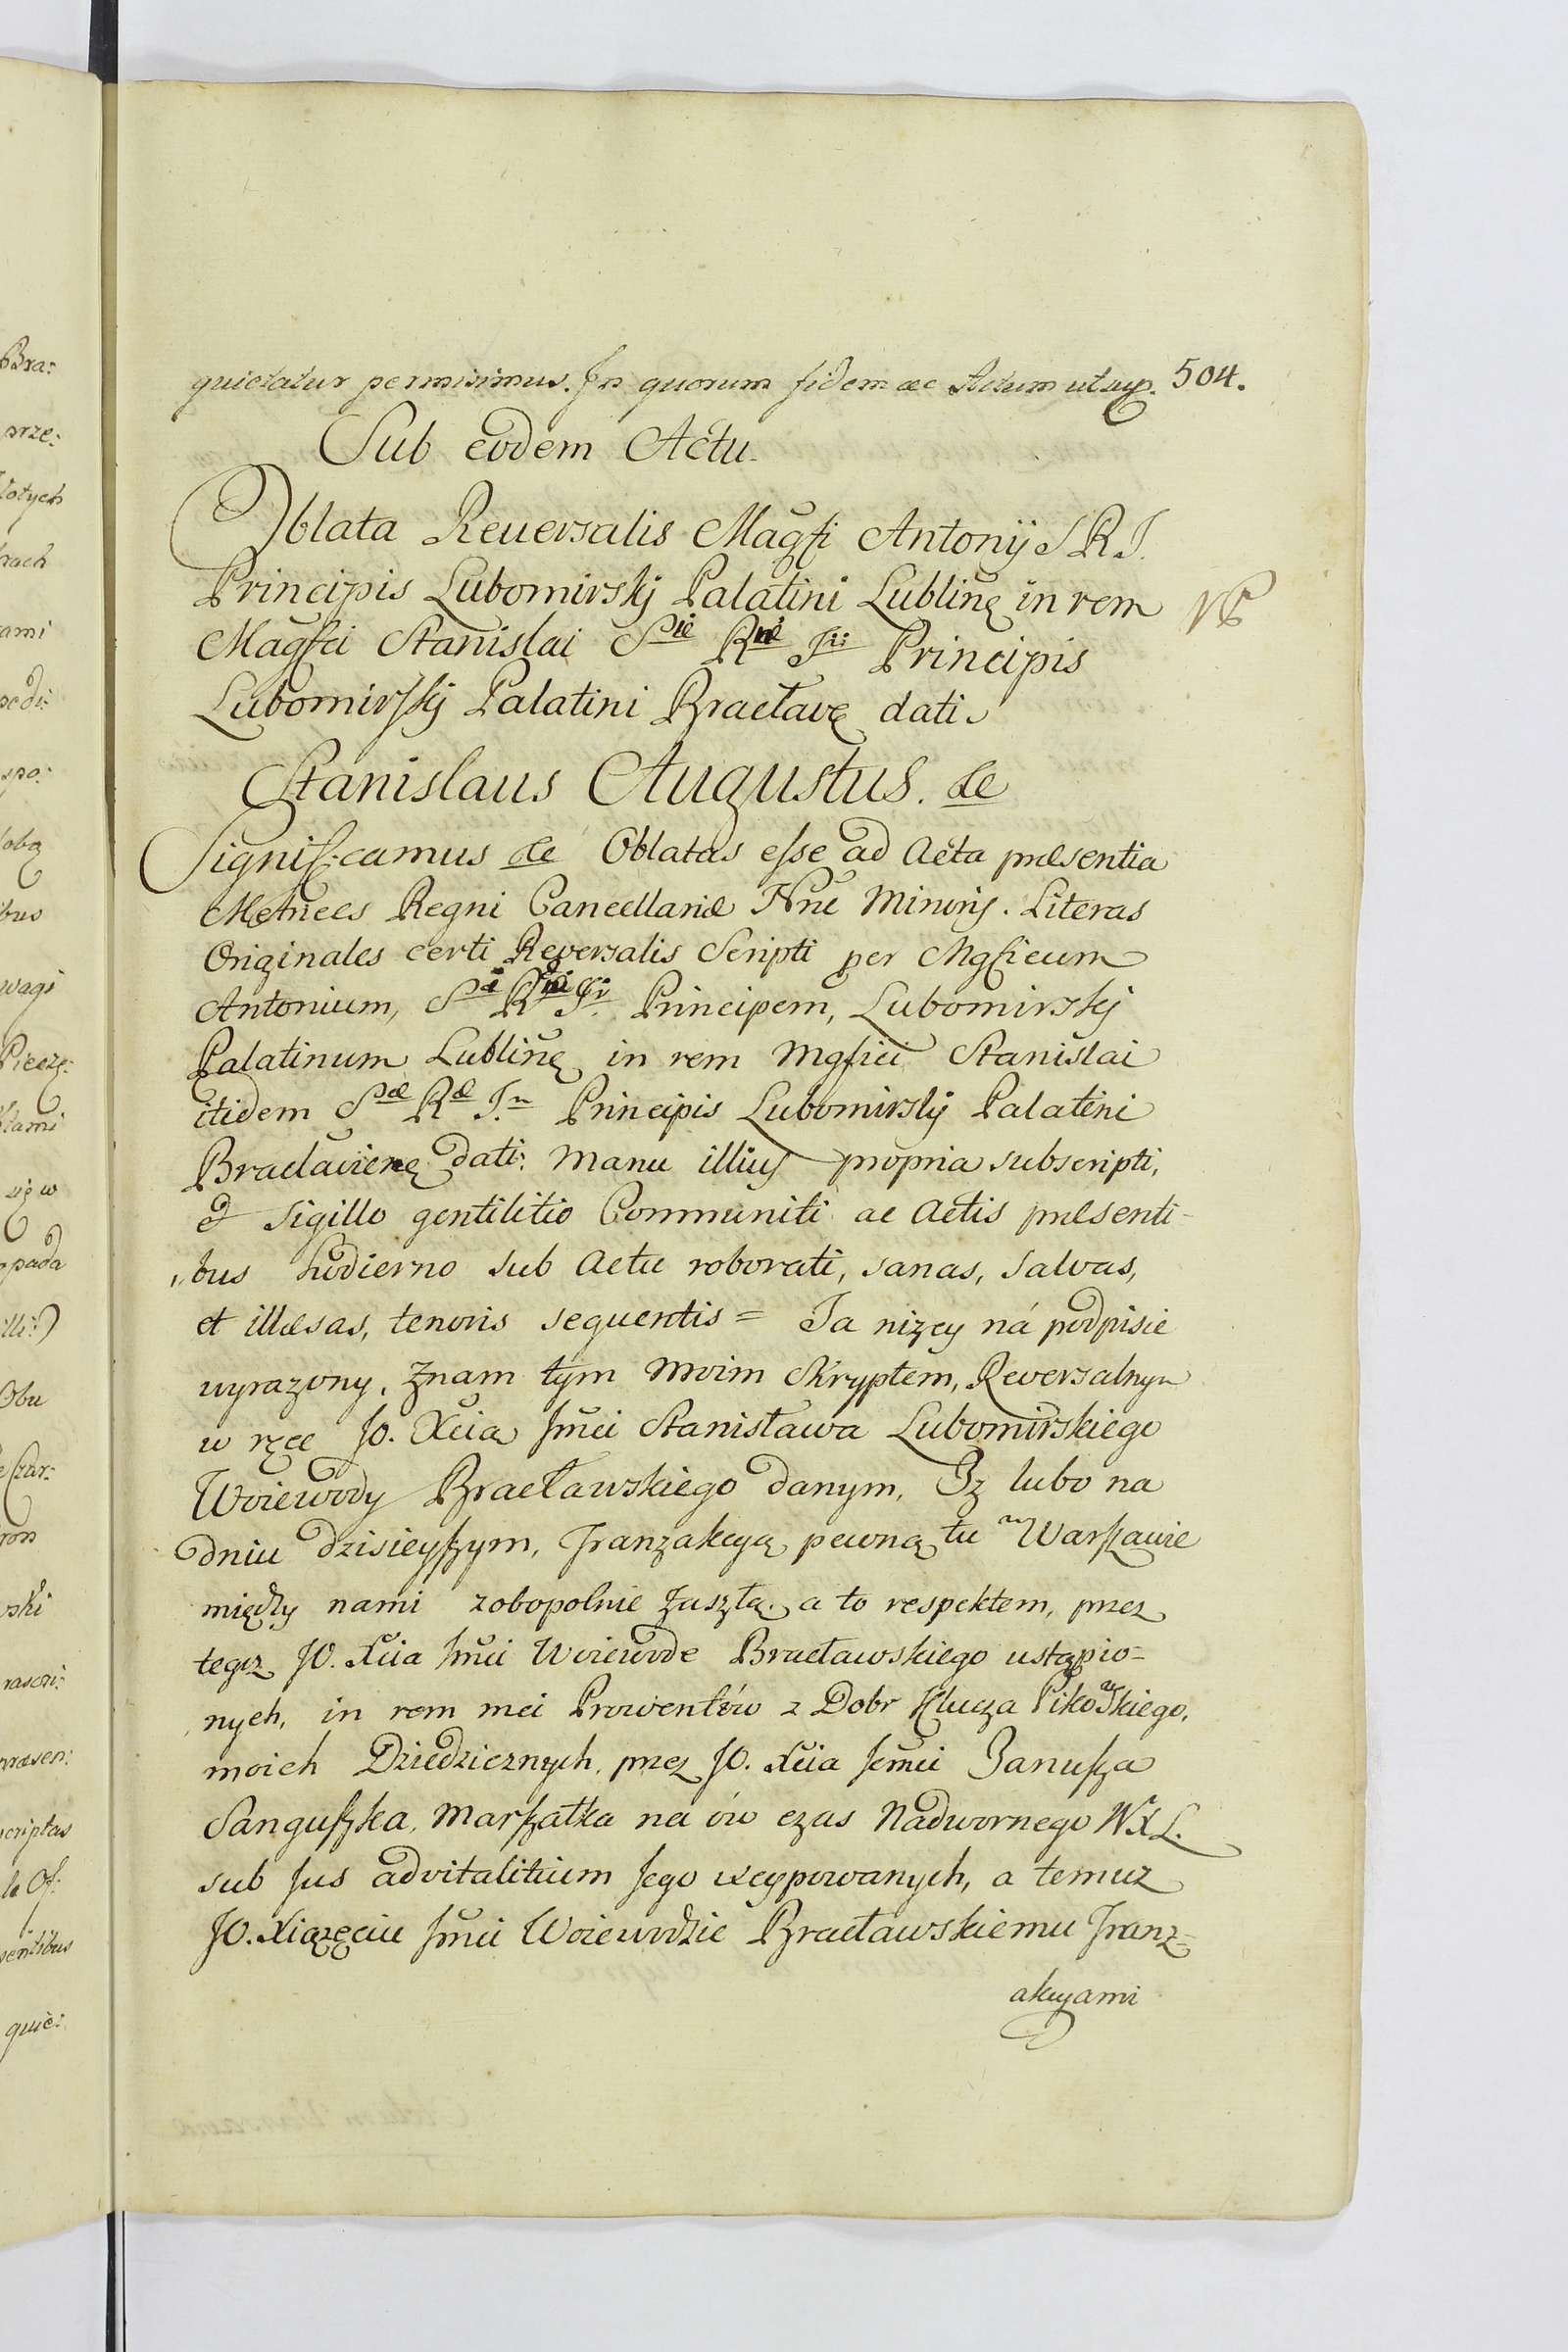 quietatur permisimus. In quorum fidem ac Actum ut sup. 504.
Sub eodem Actu.
Oblata Reuersalis Magfi Antonij S R I.
Principis Lubomirskj Palatini Lublinę in rem
Magfci Stanislai Sie Rni Iii Principis
Lubomirskj Palatini Bracłavę dati.
Stanislaus Augustus. &c
Significamus &c Oblatas esse ad Acta præsentia
Metrices Regni Cancellariæ Nrae Minoris. Literas
Originales certi Reversalis Scripti per Mgficum
Antonium, Sæ Rni Iii Principem, Lubomirskj
Palatinum Lublinę in rem Mgfici Stanislai
itidem Sæ Ræ In Principis Lubomirskj Palatini
Braclavienę dati: manu illius propria subscripti,
et Sigillo gentilitio Communiti ac Actis præsenti-
„bus hodierno sub Actu roborati, sanas, salvas,
et illæsas, tenoris sequentis = Ja niżey ná podpisie
wyrazony, Znam tym moim Skryptem, Reversalnym
w ręce JO. Xcia Jmci Stanisława Lubomirskiego
Woiewody Bracławskiego danym, Iz lubo na
dniu dzisieyszym, Tranzakcyą pewną tu w Warszawie
między nami zobopolnie zaszłą. a to respektem, przez
tegoz JO. Xcia Jmci Woiewode Bracławskiego ustąpio=
nych, in rem mei Prowentów z Dobr Klucza Pikowskiego,
moich Dziedzicznych, przez JO. Xcia Jemci Janusza
Sanguszka, Marszałka na ów czas Nadwornego WXL.
sub Jus advitalitium Jego excypowanych, a temuz
JO. Xiązęciu Jmci Woiewodzie Bracławskiemu Tranz=
akcyami